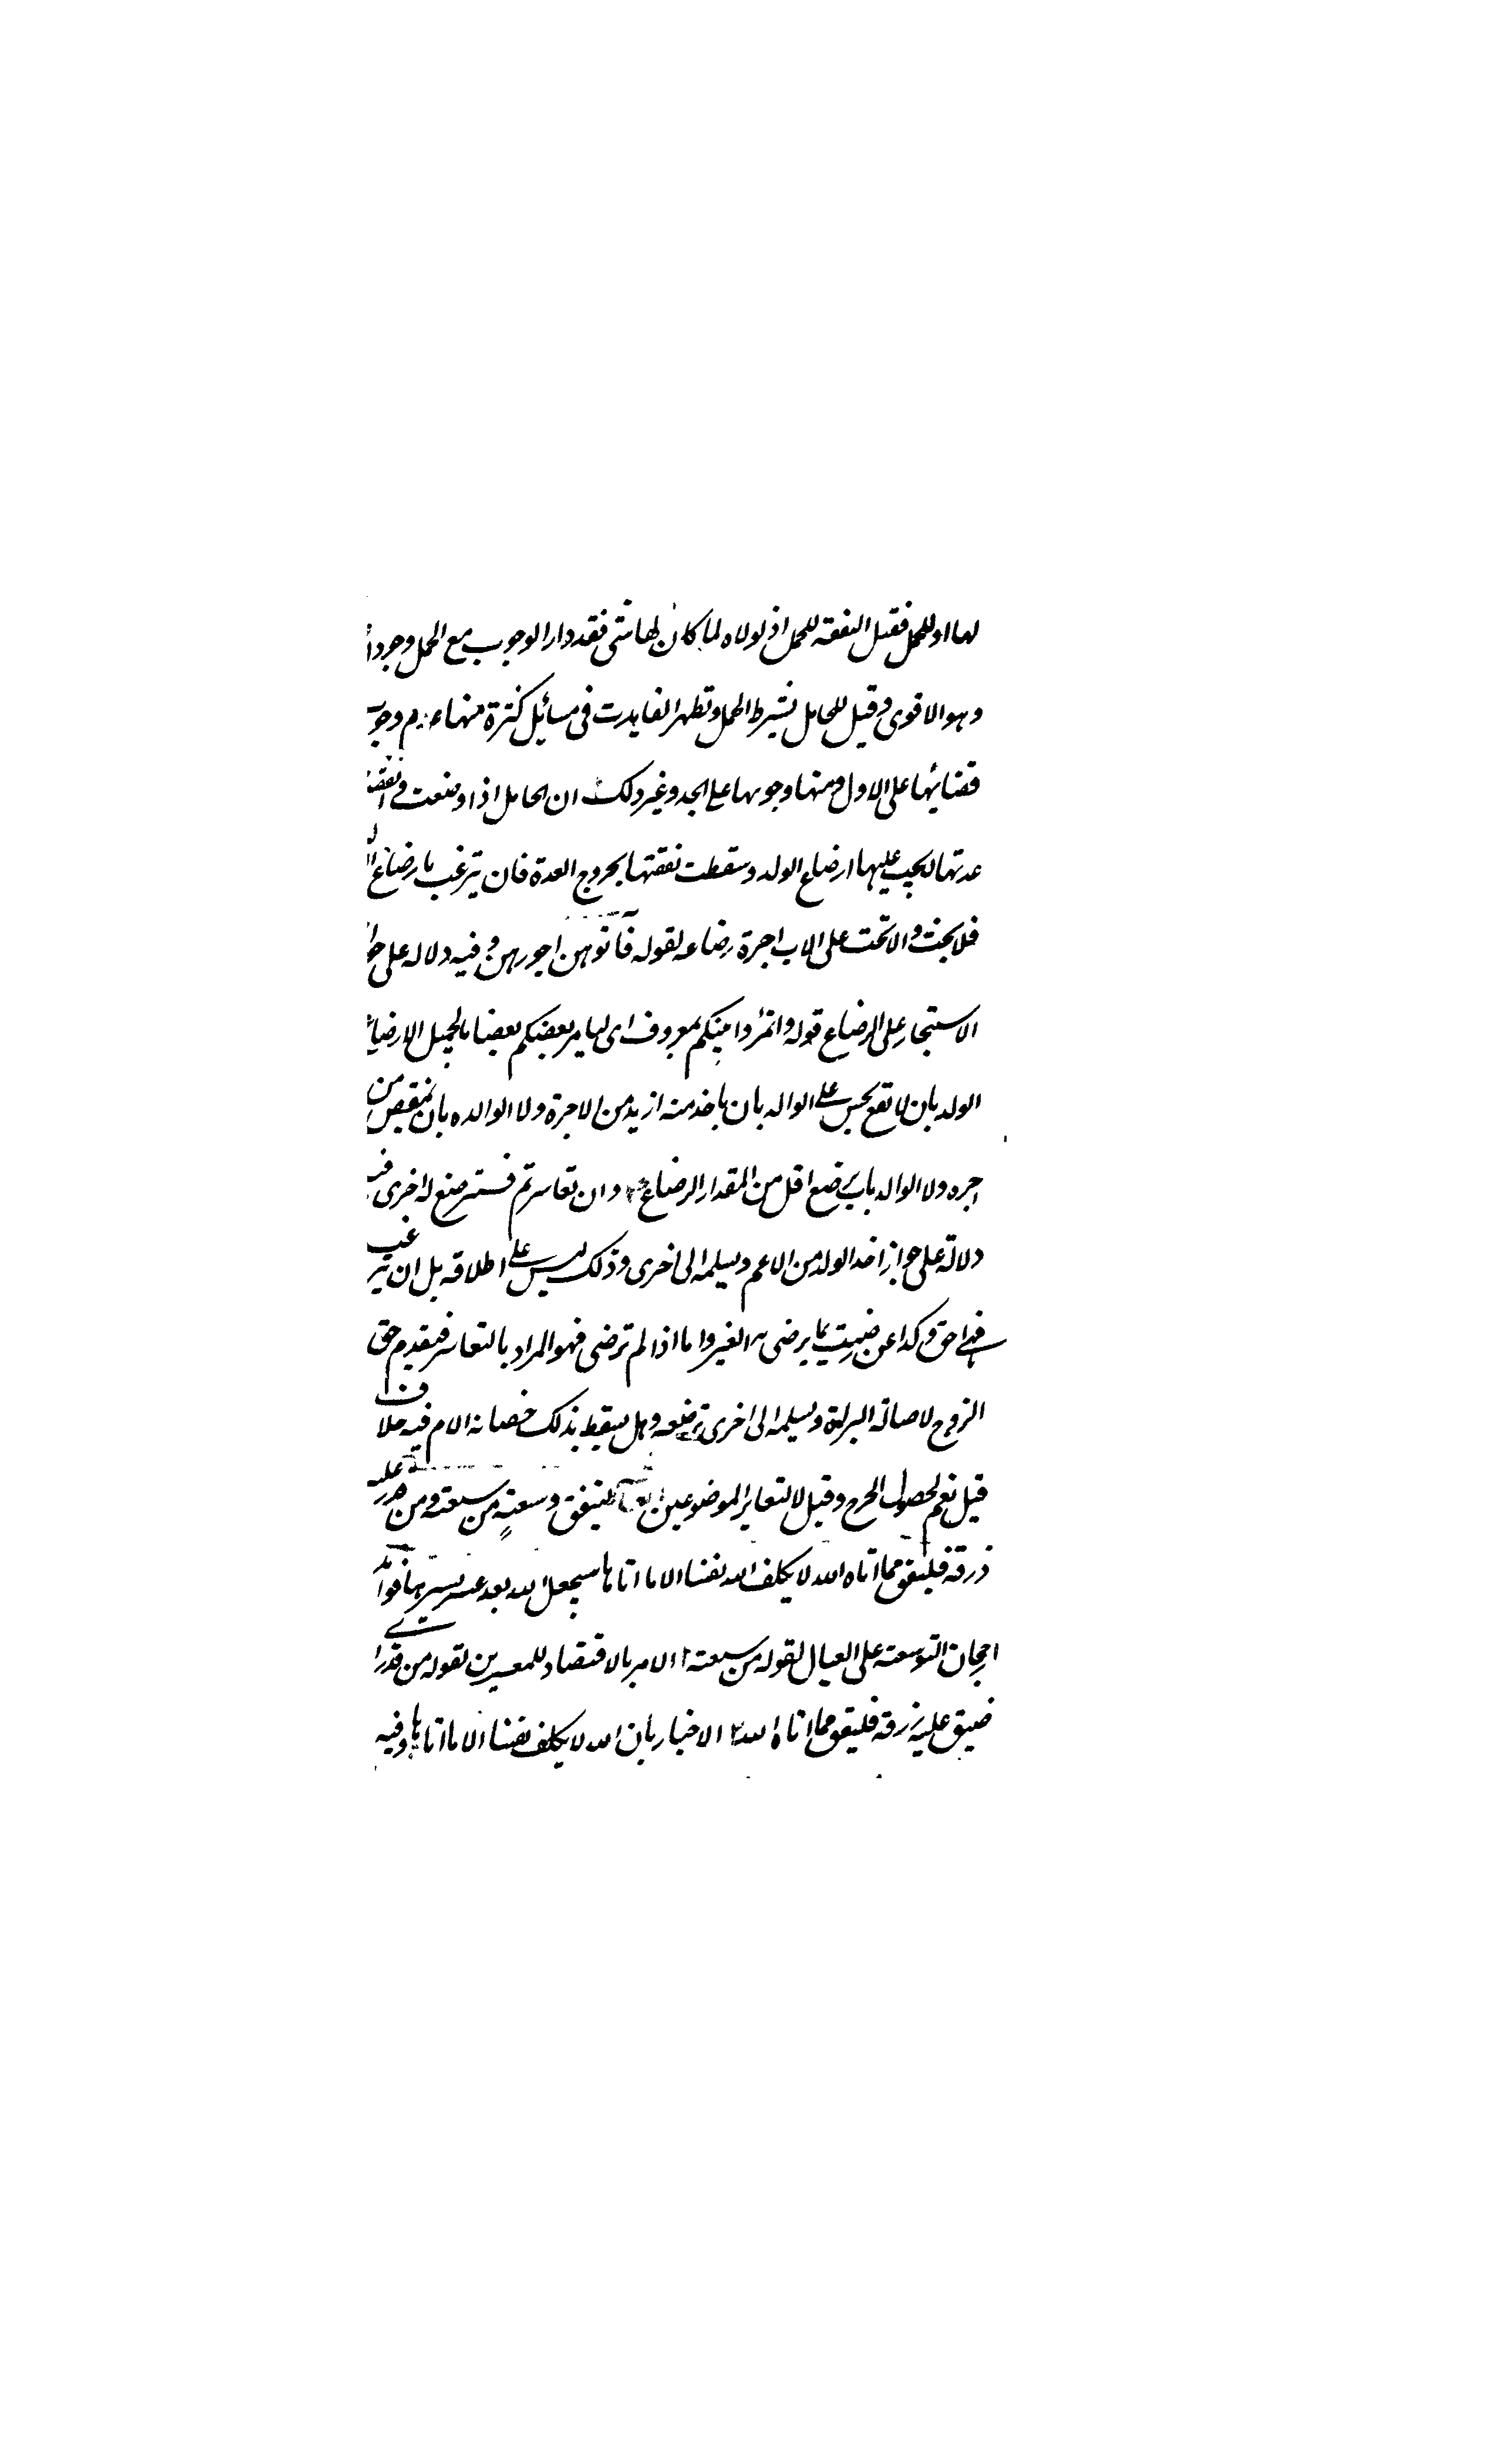 لها او للحمل فقيل النفقه للحمل اذ لولاه لما كان لها شی فقد دار الوجوب مع الحمل وجودا
وهو الاقوى وقيل للحامل بشرط الحمل وتظهر الفايدت فی مسائل كثرة منها عدم وجوب
قضائها على الاول ومنها وجوبها علی الجد وغير ذلك ان الحامل اذا وضعت و انقضت
عدتها لم يجب عليها ارضاع الولد وسقطت نفقتها بخروج العدة فان ترغب بارضاع
على الاب اجرة رضاعه لقوله فاتوهن اجورهن وفيه دلاله على جوا
الاستيجار على الرضاع قوله واتمروا بينكم بمعروف ای ليامر بعضكم بعضا بالجميل الارضاع
الولد بان لا تقع بخس علی الوالد بان ياخذ منه ازيد من الاجرة ولا الوالده بان ينقص من
اجره ولا الوالد بان يرضع اقل من المقدار الرضاع وان تعاسرتم فسترضع له اخرى فيه
دلالة على جواز اخذ الولد من الام وتسليمه الى اخرى وذلك ليس علی اطلاقه بل ان ترغب
فهی احق وكذا عن بما يرضى به الغير واما اذا لم ترضى فهو المراد بالتعاسر فيقدم حق
الزوج لاصالة البراءة وتسليمه الى اخرى ترضعه وهل يسقط بذلك حضانه الام فيه خلاف
قيل نعم لحصول الحرج وقيل لا لتغاير الموضوعين لينفق ذ وسعةٍ من سعته ومن قدر عليه
رزقه فلينفق مما اتاه الله لا يكلف الله نفسا الا ما اتاها سيجعل الله بعد عسر يسرا هنا فوائد
ارجحان التوسعة على العيال لقوله من سعته ٢ الامر بالاقتصاد للمعسرين لقوله من قدر ای
ضيق عليه رزقه فلينفق مما اتاه الله ٣ الاخبار بان الله لا يكلف نفسا الا ما اتاها وفيه